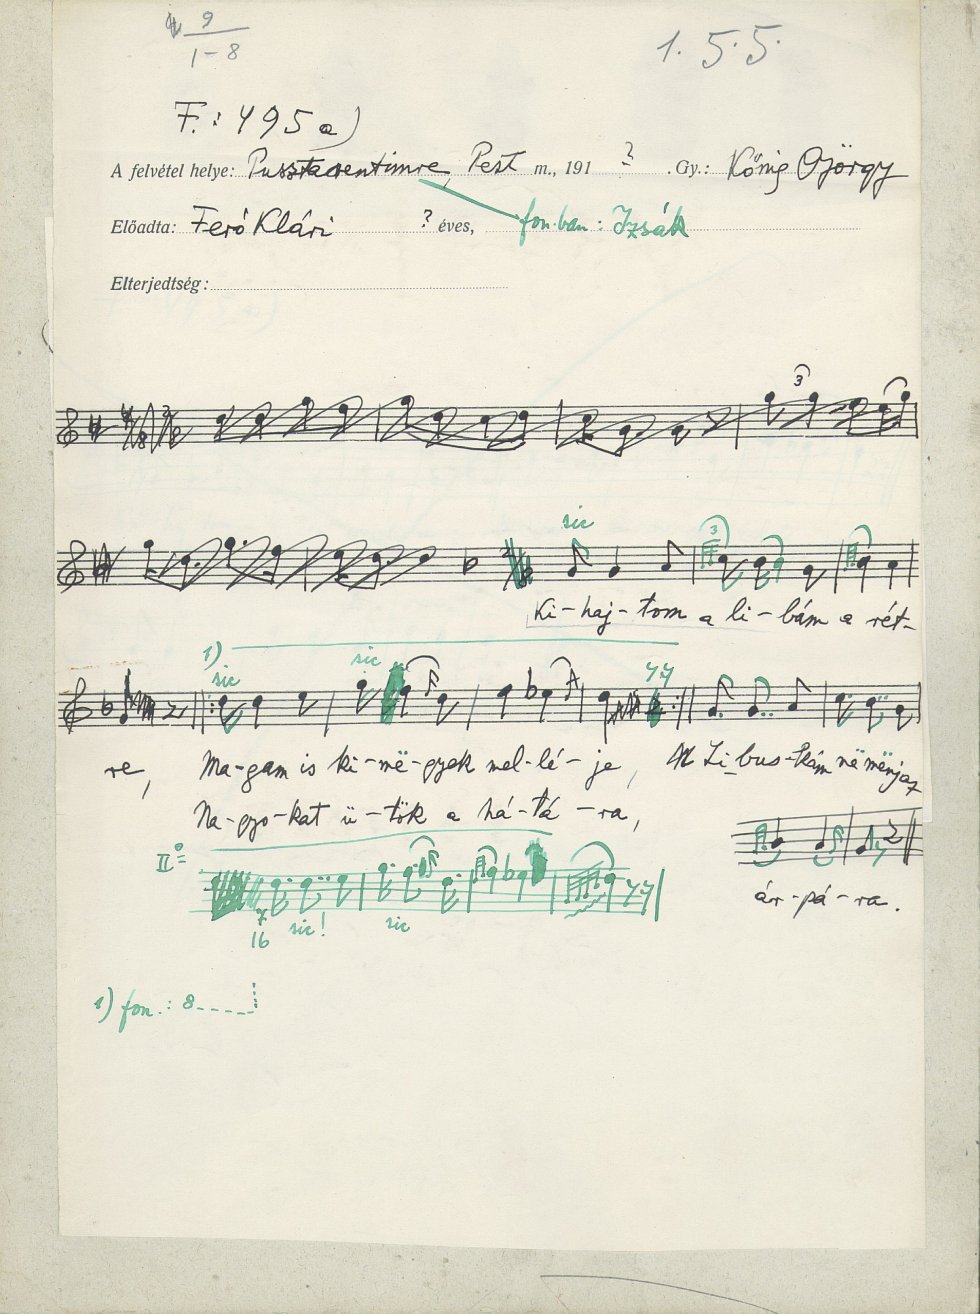 9
1-8
1. 5. 5.
F.: 495 a)
A felvétel helye: Pusztaszentimre, Pest m., 191 ? . Gy.: Kőnig György
Előadta: Feró Klári ? éves, fon.ban: Izsák
Elterjedtség:
3
sic
3
Ki-haj-tom a li-bám a rét-
1)
sic sic
re, Ma-gam is ki-më-gyek mel-lé-je, Li-bus-kám në mënj az
Na-gyo-kat ü-tök a há-tá-ra,
II°=
ár-pá-ra.
7
16 sic! sic
1) fon.: 8